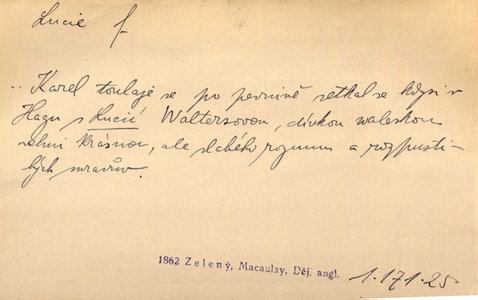 Lucie f
.. Karel toulaje se po pevnině setkal se kdysi v
Hagu s Lucií Waltersovou, dívkou waleskou
velmi krásnou, ale slabého rozumu a rozpusti-
lých mravův.
1862 Zelený, Macaulay, Děj. angl. 1.171.25